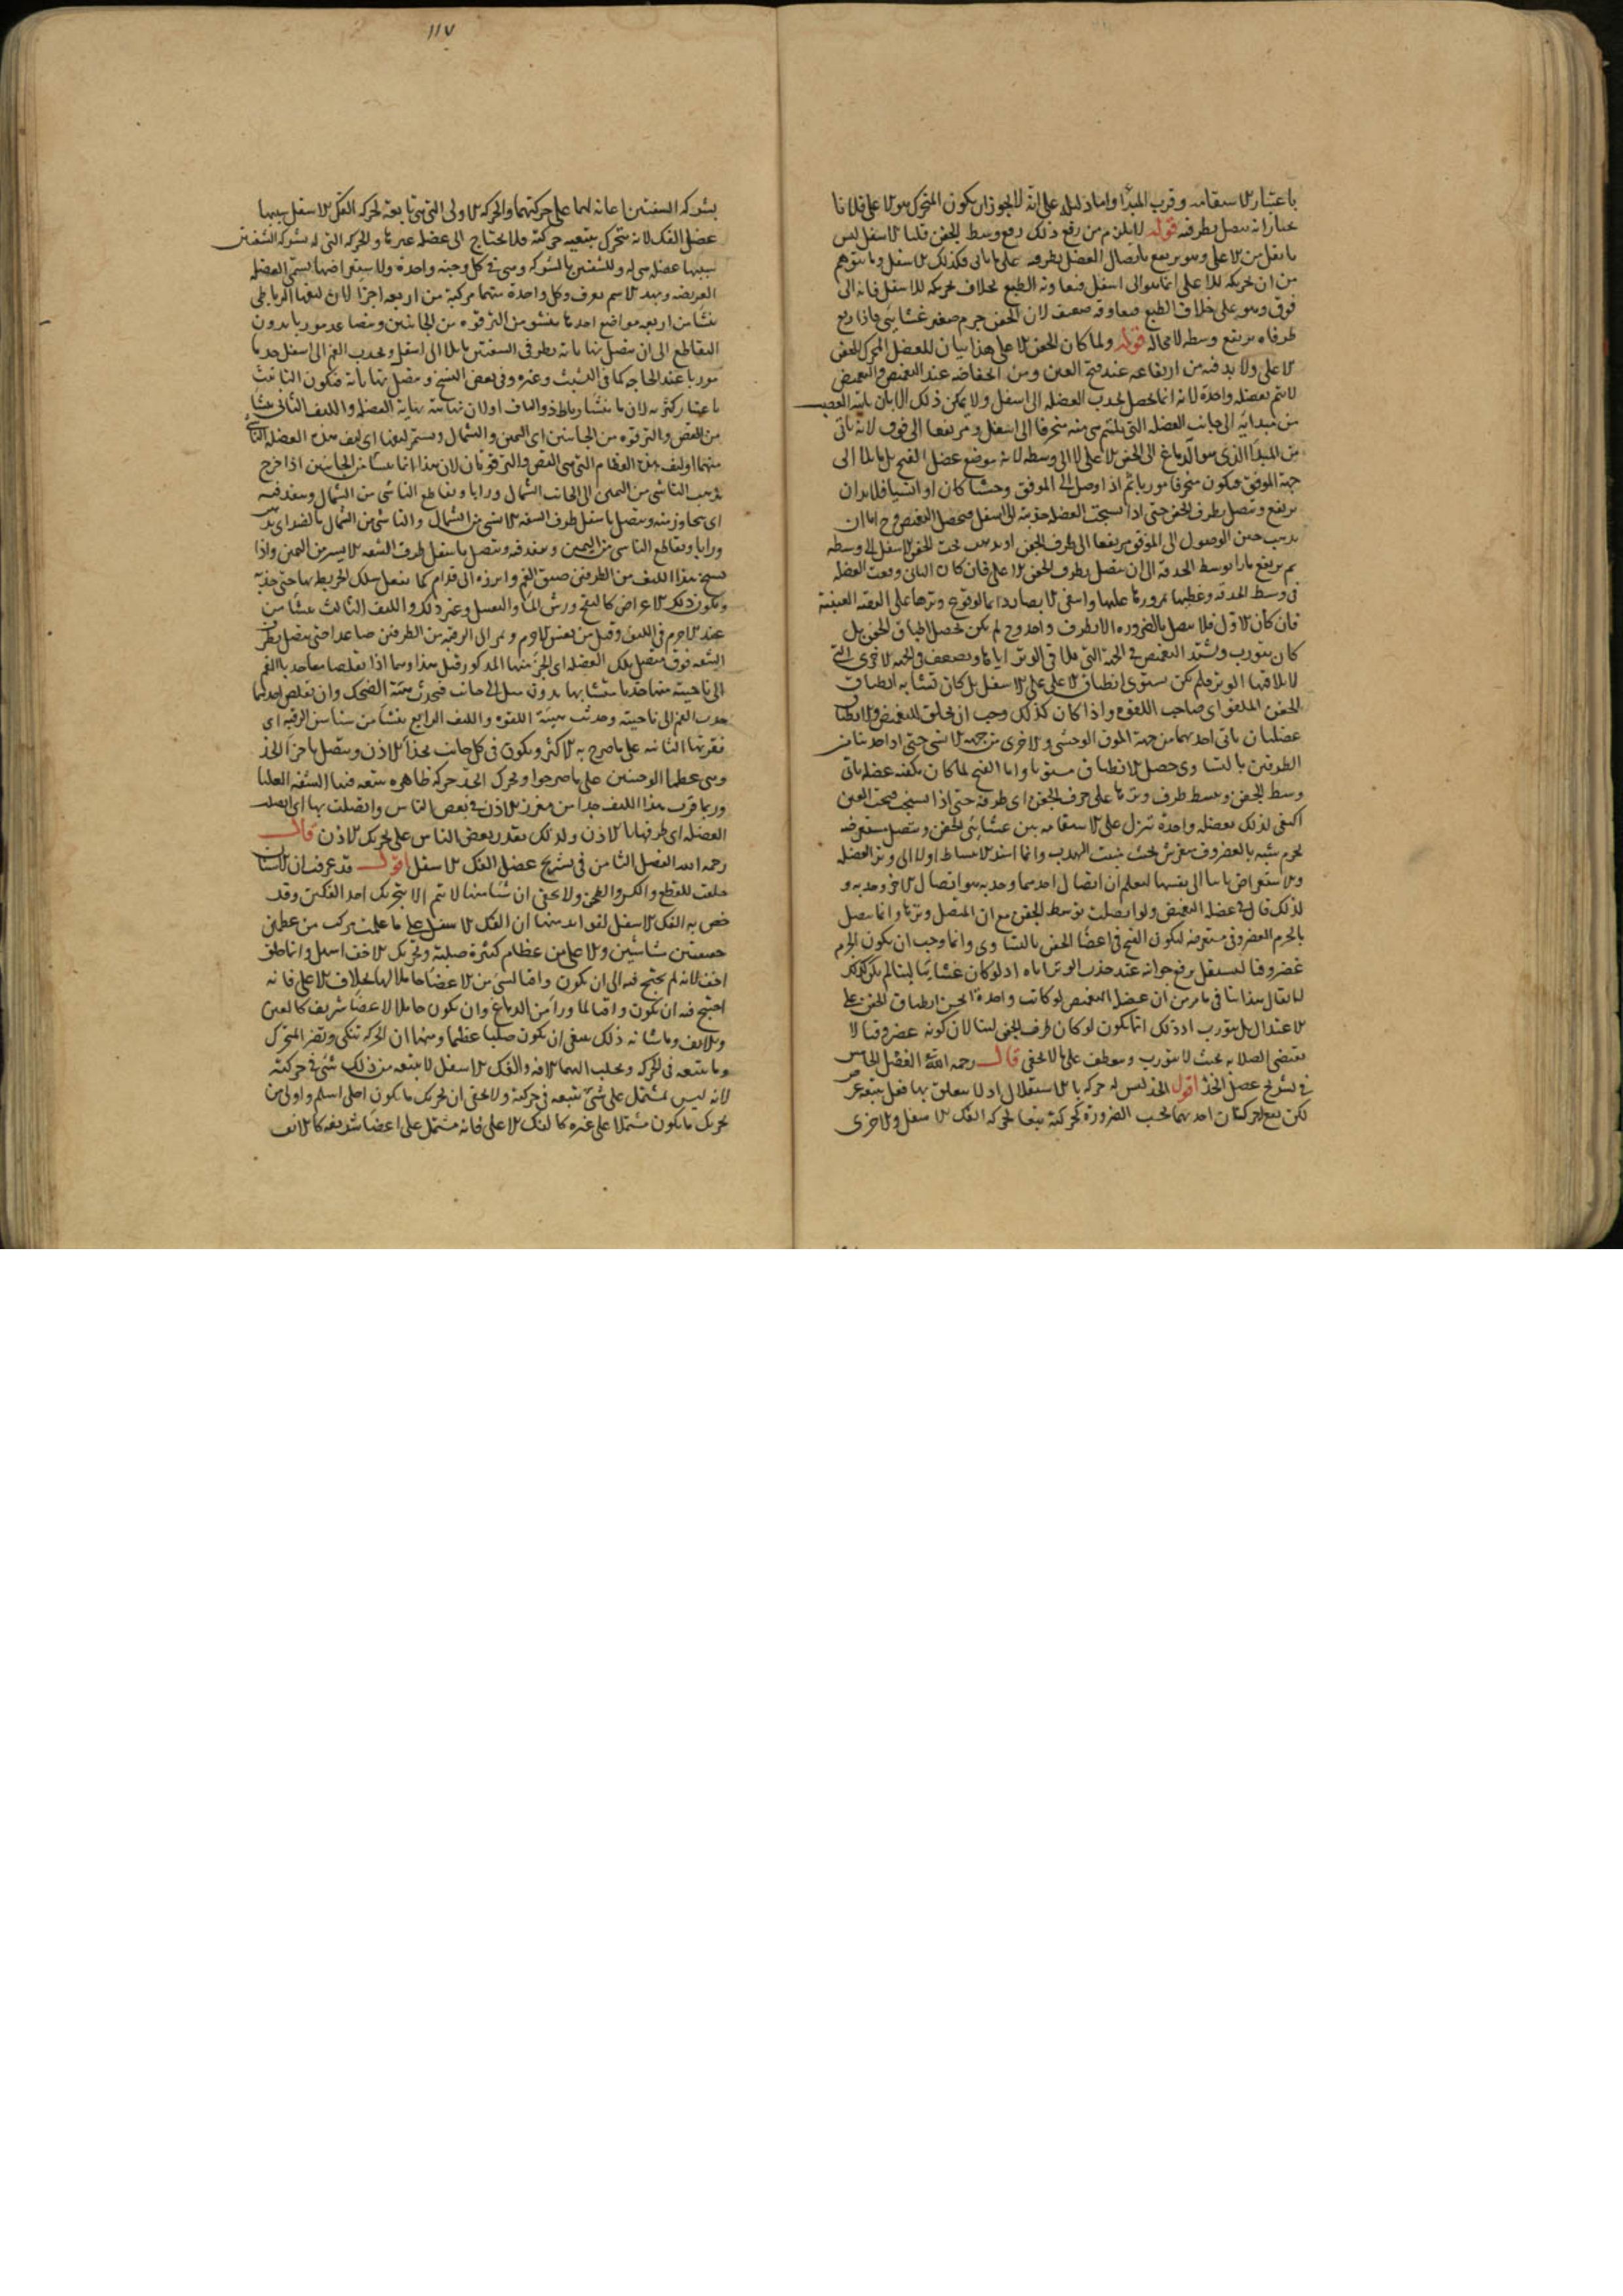 باعتبار الاستقامة وقرب المبدأ واما دليله على انه لا يجوز ان يكون المتحرك هو الاعلى فلا
انه يتصل بطرفه قوله لا يلزم من رفع ذلك رفع وسط الجفن قلنا الاسفل ليس
باثقل من الاعلى وهو يرتفع باتصال العضل بطرفه على ما ياتى فكذلك الاسفل وما يتوهم
من ان تحريكه للاعلى انما هو الى اسفل الطبع بخلاف تحريكه للاسفل فانه الى
فوق وهو على خلاف الطبع ضعيف لان الجفن جرم صغير غشائى فاذا رفع
طرفاه يرتفع وسطه لا محالة قوله ولما كان الجفن الاعلى هذا بيان للعضل المحرك للجفن
الاعلى ولا بد فيه من ارتفاعه عند فتح العين ومن انخفاضه عند التغميض والتغميض
لا يتم بعضلة واحدة لانه انما يحصل بجذب العضلة الى اسفل ولا يمكن ذلك الا بان ياتيه العصب
من مبدائه الى جانب العضلة التى منحرفا الى اسفل ومرتفعا الى فوق لانه ياتى
من المبدأ الذى هو الدماغ الى الجفن الاعلى لا الى وسطه لانه موضع عضل الفتح بل مائلا الى
جهة الموق فيكون منحرفا موربا ثم اذا وصل الى الموق وحشيا كان او انسيا فلا بد ان
يرتفع ويتصل بطرف الجفن حتى اذا تشنجت العضلة جذبته الى اسفل فيحصل التغميض وح اما ان
يذهب حين الوصول الى الموق مرتفعا الى طرف الجفن او يذهب تحت الجفن الاسفل الى وسطه
ثم يرتفع مارا بوسط الحدقة الى ان يتصل بطرف الجفن الاعلى فان كان الثانى وقعت العضلة
فى وسط الحدقة وغطتها بمرورها عليها
فان كان الاول فلا يتصل بالضرورة الا بطرف واحد وح لم يكن يحصل اطباق الجفن بل
كان يتورب ويشتد التغميض فى الجهة التى تلاقى الوتر اياها ويضعف فى الجهة الاخرى التى
لا يلاقيها الوتر فلم يكن يستوى انطباق الاعلى على الاسفل بل كان يشابه انطباق
الجفن الملقو اى صاحب اللقوة واذا كان كذلك وجب ان يخلق للتغميض والانطباق
عضلتان ياتى احديهما من جهة الموق الوحشى والاخرى من جهة الانسى حتى اذا جذبتا من
الطرفين بالتساوى حصل الانطباق مستويا واما الفتح لما كان يكفيه عضلة ياتى
وسط الجفن ويبسط طرف وترها على حرف الجفن اى طرفه حتى اذا تشنجت فتحت العين
اكتفى لذلك بعضلة واحدة تنزل على الاستقامة بين غشائى الجفن ويتصل مستعرضه
بجرم شبيه بالغضروف منفرش تحت منبت الهدب وانما اسند الانبساط اولا الى وتر العضلة
والاستعراض ثانيا الى نفسها ليعلم ان اتصال احدهما وجذبه هو اتصال الاخر وجذبه و
لذلك قال فى عضلة التغميض ولو اتصلت بوسط الجفن مع ان المتصل وترها وانما يتصل
بالجرم الغضروفى مستعرضة ليكون الفتح فى اعضاء الجفن بالتساوى وانما وجب ان يكون الجرم
غضروفيا ليستقل برفع جوانبه عند جذب الوتر اياه اذ لو كان غشائيا لينا لم يكن كذلك
لا يقال هذا ينافى ما مر من ان عضل التغميض لو كانت واحدة لم يحسن انطباق الجفن على
الاعتدال بل يتورب اذ ذلك انما يكون لو كان طرف الجفن لينا لان كونه غضروفيا لا
يقتضى الصلابة بحيث لا يتورب وينعطف على ما لا يخفى قال رحمه الله الفصل الخامس
فى تشريح عضل الخد اقول الخد ليس له حركة بالاستقلال اذ لا يتعلق بها فعل
لكن يقع له حركتان احديهما بحسب الضرورة كحركته تبعا لحركة الفك الاسفل والاخرى
١١٧
بشركة الشفتين اعانة لهما على حركتهما والحركة الاولى التى هى تابعة لحركة الفك الاسفل سببها
عضل الفك لانه يتحرك بتبعية حركته فلا يحتاج الى عضلة غيرها والحركة التى له بشركة الشفتين
سببها عضلة هى له وللشفتين بالشركة وهى فى كل وجنة واحدة ولاستعراضها يسمى العضلة
العريضة وبهذا الاسم يعرف وكل واحدة منهما مركبة من اربعة اجزاء لان ليفها الرباطى
ينشأ من اربعة مواضع احدها ينشو من الترقوة من الجانبين ويتصاعد موربا بدون
التقاطع الى ان يتصل نهاياته بطرفى الشفتين مائلا الى اسفل ويجذب الفم الى اسفل جذبا
موربا عند الحاجة كما فى التثبت وغيره وفى بعض النسخ ويتصل نهاياته فيكون التانيث
باعتبار كثرته لان ما ينشأ رباط ذو الياف او لان نهايته نهاية العضلة والليف الثانى ينشأ
من القص والترقوة من الجانبين اى اليمين والشمال ويستمر ليفها اى ليف هذه العضلة الناشى
منهما او ليف هذه العظام التى هى القص والترقوتان لان هذا انما ينشأ من الجانبين اذا خرج
يذهب الناشى من اليمين الى الجانب الشمال ورابا ويقاطع الناشى من الشمال وينفذ فيه
اى يتجاوز عنه ويتصل باسفل طرف الشفة الايسر من الشمال والناشى من الشمال بالضد اى يذهب
ورابا ويقاطع الناشى من اليمين وينفذ فيه ويتصل باسفل طرف الشفة الايمن من اليمين واذا
تشنج هذا الليف من الطرفين ضيق الفم وابرزه الى قدام كما يفعل سلك الخريطة بها حتى جذبه
ويكون ذلك لاغراض كالنفخ ورش الماء والتقبيل وغير ذلك والليف الثالث ينشأ من
عند الاخرم فى الكتف وقيل من ويمر الى الرقبة من الطرفين صاعدا حتى يتصل بطرفى
الشفة فوق متصل تلك العضلة اى الجزء منها المذكور قبل هذا وهما اذا تقلصا معا جذبا الفم
الى ناحيتيهما جذبا متشابها بدون ميل الى جانب فيحدث هيئة الضحك وان تقلص احدهما
جذب الفم الى ناحيته وحدثت هيئة اللقوة والليف الرابع ينشأ من سناسن الرقبة اى
فقرتها الثانية على ما صرح به الاكثر ويكون فى كل جانب بحذاء الاذن ويتصل باجزاء الخد
وهى عظما الوجنتين على ما صرحوا ويحرك الخد حركة ظاهرة يتبعه فيها الشفة العليا
وربما قرب هذا الليف جدا من مغرز الاذن فى بعض الناس واتصلت بها اى اتصلت
العضلة اى طرفها بالاذن ولذلك يقدر بعض الناس على تحريك الاذن قال
رحمه الله الفصل الثامن فى تشريح عضل الفك الاسفل اقول قد عرفت ان الاسنان
خلقت للقطع والكسر والطحن ولا يخفى ان شيئا منها لا يتم الا بتحريك احد الفكين وقد
خص به الفك الاسفل لفوائد منها ان الفك الاسفل على ما علمت مركب من عظمين
خفيفين مشاشيين والاعلى من عظام كثيرة صلبة وتحريك الاخف اسهل وانما خلق
اخف لانه لم يحتج فيه الى ان يكون واقيا لشىء من الاعضاء حاملا لها بخلاف الاعلى فانه
احتيج فيه ان يكون واقيا لما وراءه من الدماغ وان يكون حاملا لاعضاء شريفة كالعين
والانف وما شانه ذلك ينبغى ان يكون صلبا عظيما ومنها ان الحركة تنكى وتضر المتحرك
وما يتبعه فى الحركة وتجلب اليهما الافة والفك الاسفل لا يتبعه من ذلك شىء فى حركته
لانه ليس يشتمل على شىء يتبعه فى حركته ولا يخفى ان تحريك ما يكون اخلى اسلم واولى من
تحريك ما يكون مشتملا على غيره كالفك الاعلى فانه مشتمل على اعضاء شريفة كالانف